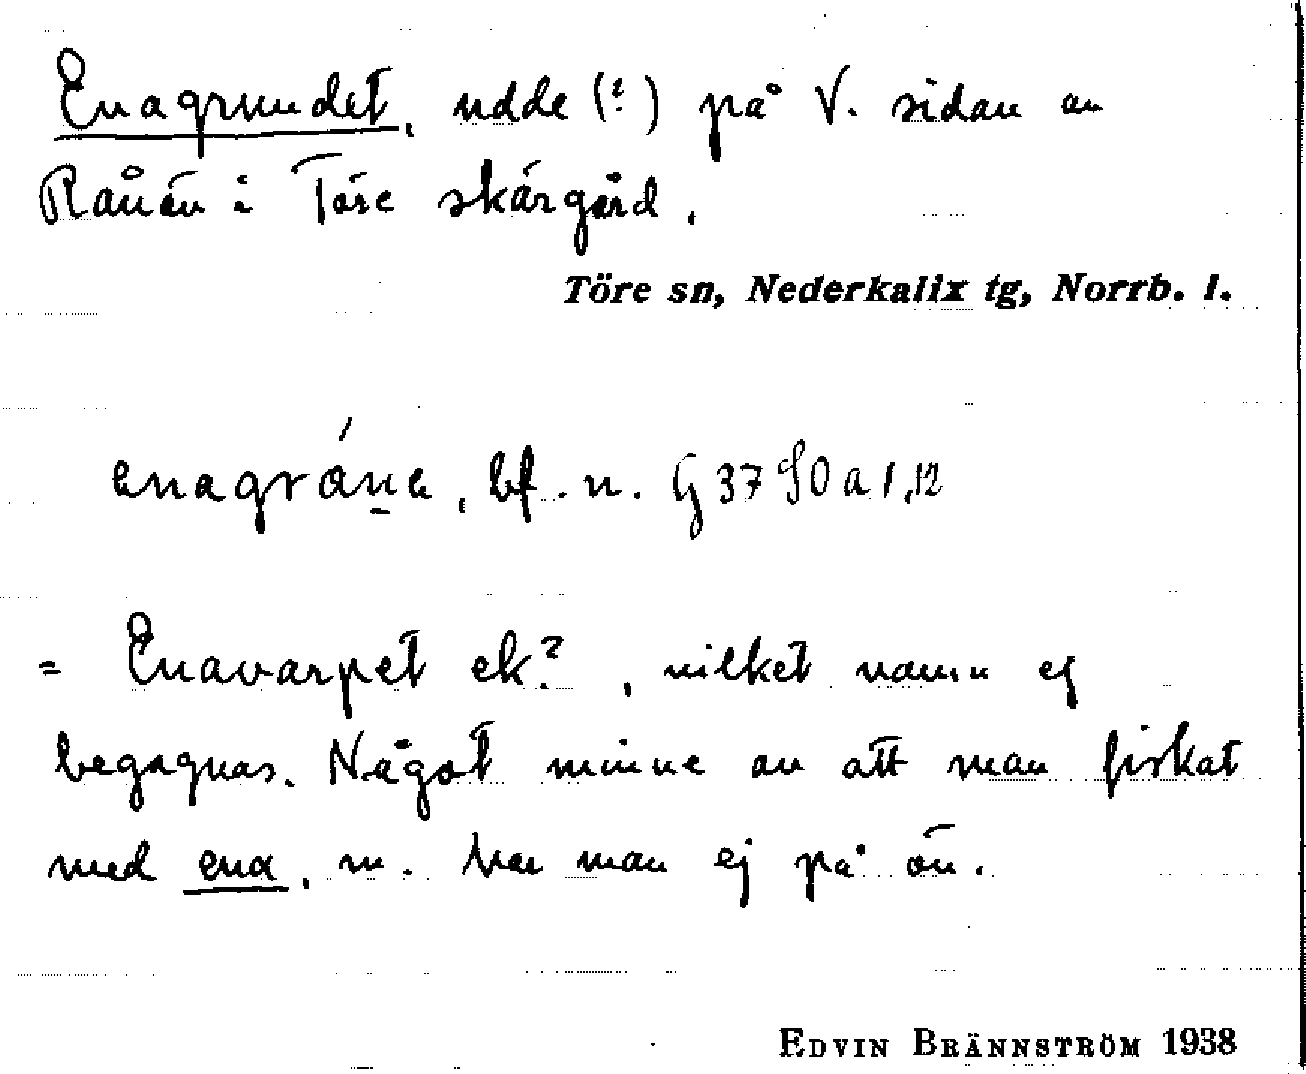 Enagrundet, udde (?) på V. sidan av
Rånön i Töre skärgård.
Töre sn, Nederkalix tg, Norrb. l.
enagrána, bf. n. G 37 90 a 1,12
= Enavarpet ek?, vilket namn ej
begagnas. Något minne av att man fiskat
med ena, m. har man ej på ön.
EDVIN BRÄNNSTRÖM 1938